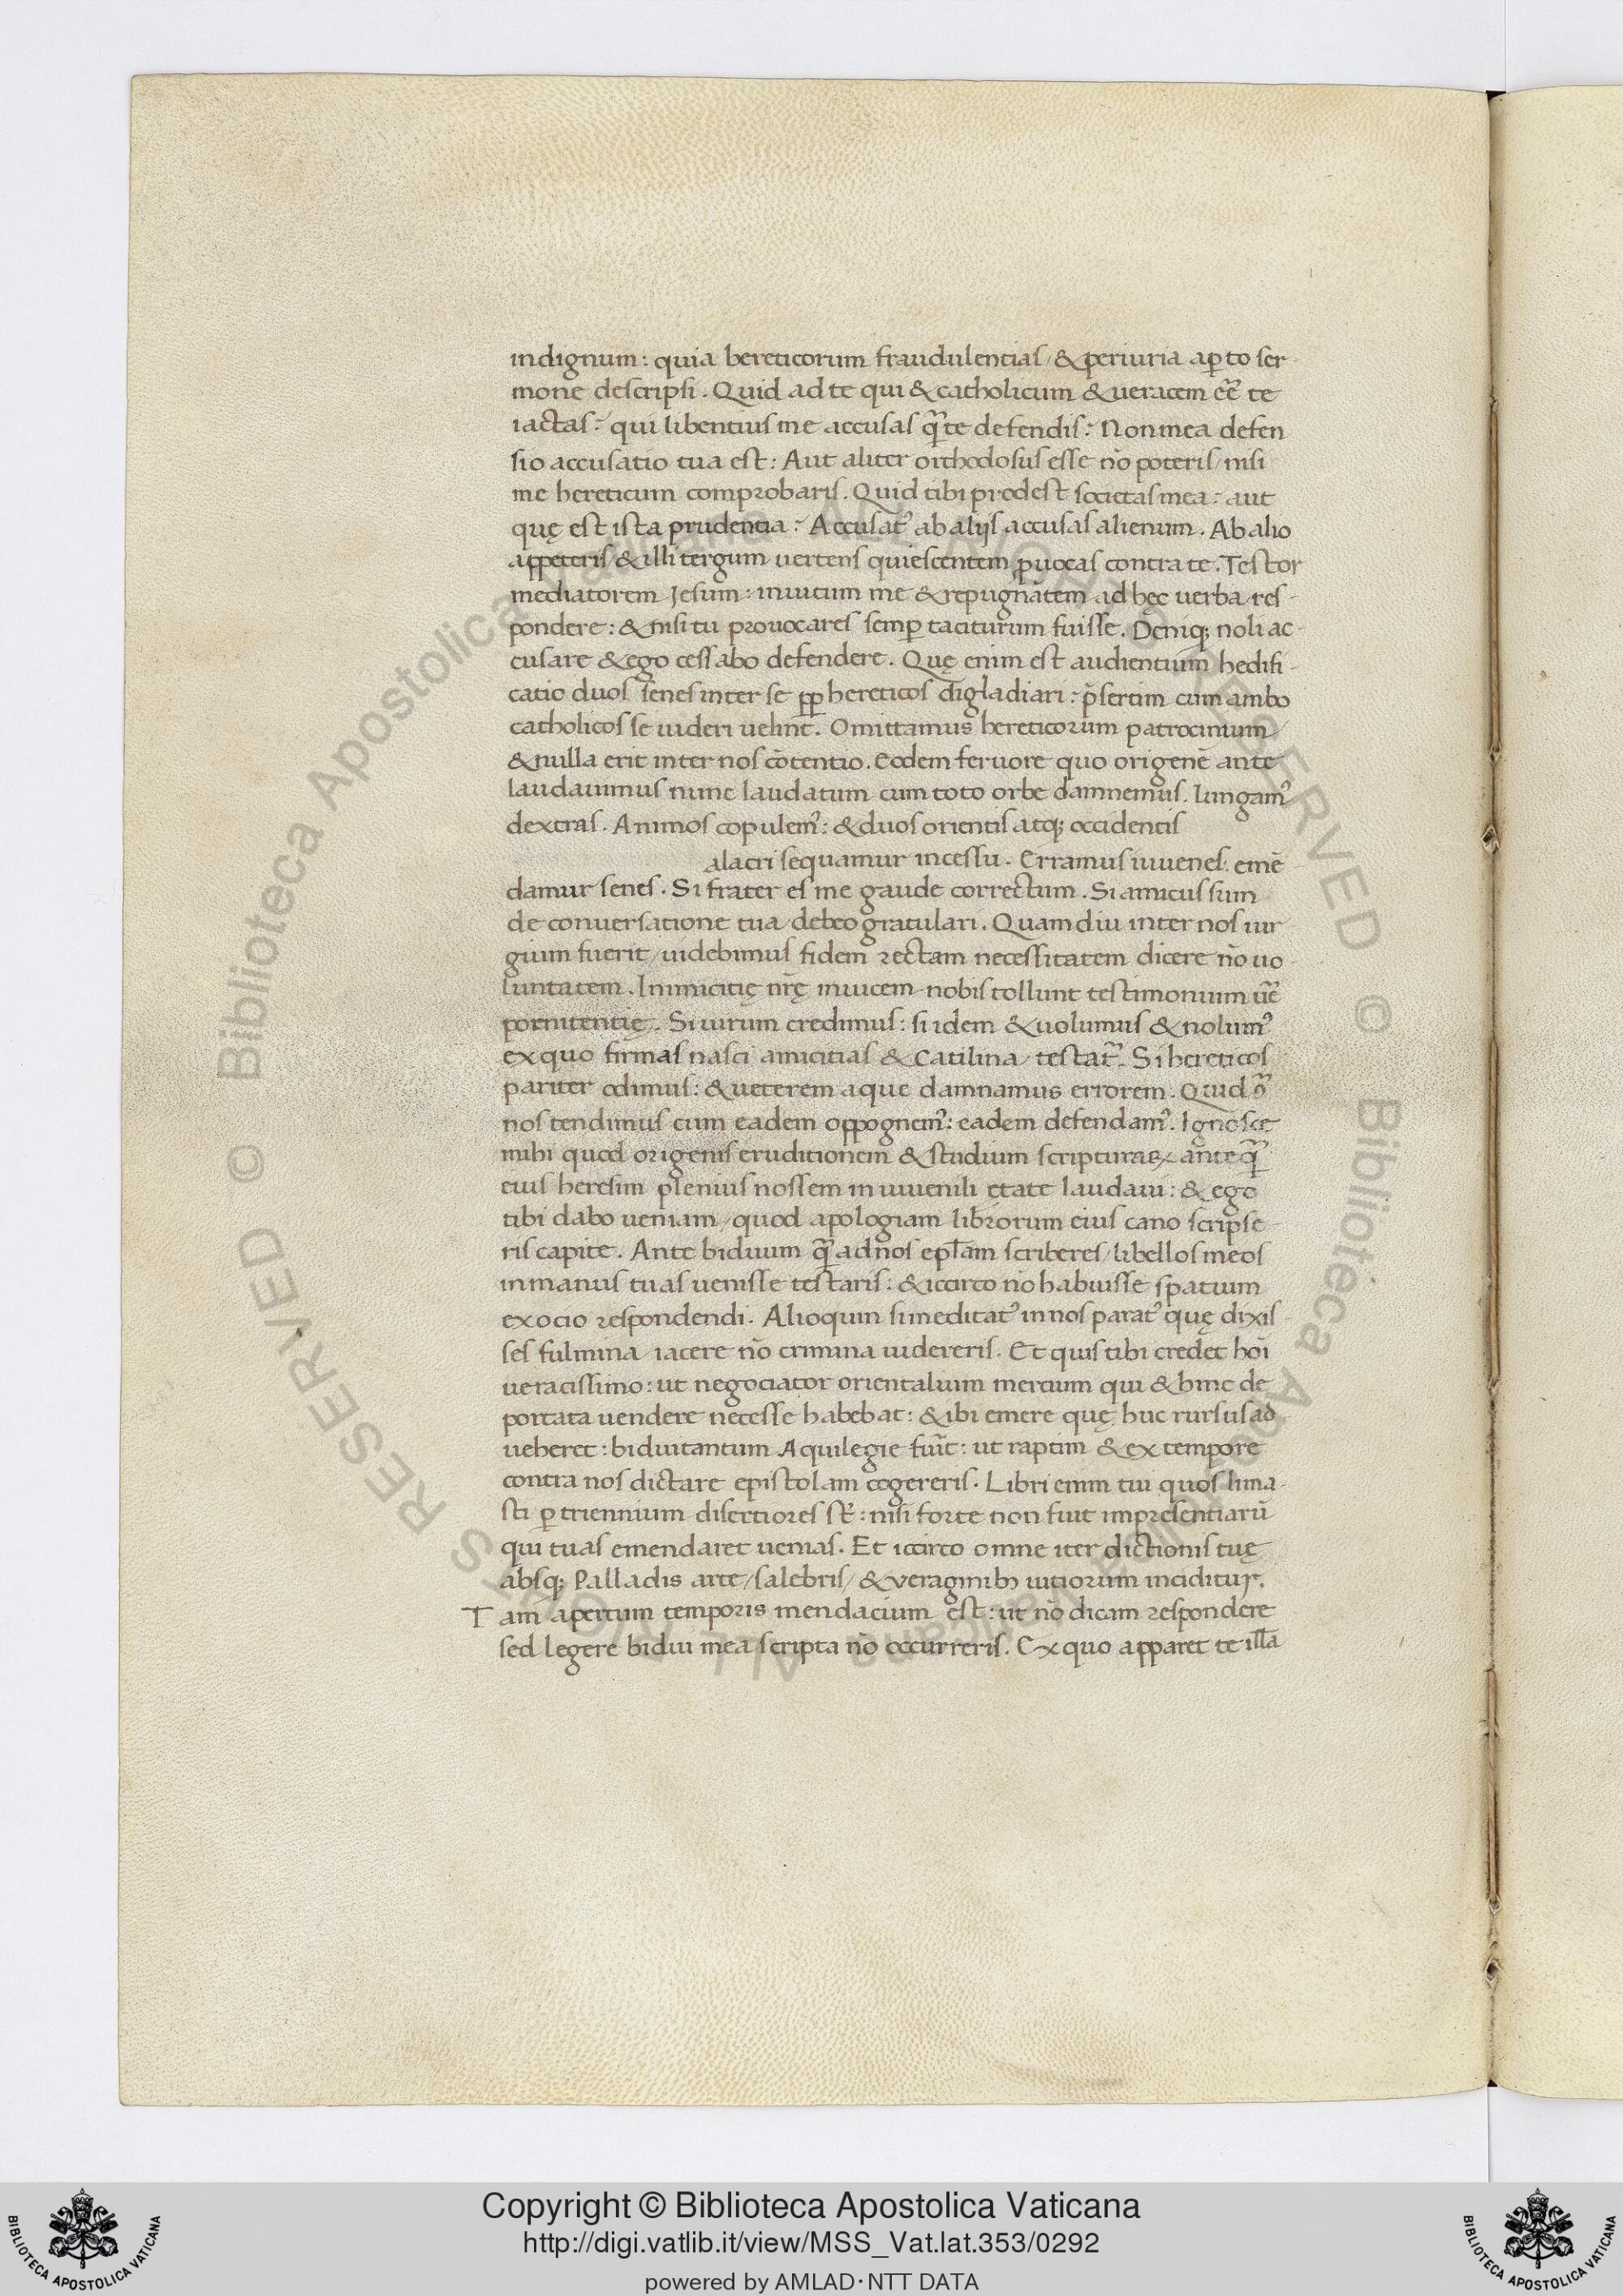 indignum: quia hereticorum fraudulentias / & periuria aꝑto ser-
mone descripsi. Quid ad te qui & catholicum & veracem eē̃ te
iactas? qui libentius me accusas q̃ te defendis? Non mea defen
sio accusatio tua est: Aut aliter orthodosus esse nō poteris / nisi
me hereticum comprobaris. Quid tibi prodest societas mea: aut
quę est ista prudentia? Accusat᷒ ab alijs accusas alienum. Ab alio
appeteris / & illi tergum vertens quiescentem ꝓuocas contra te. Testor
mediatorem Jesum: inuitum me & repugnātem ad hęc uerba res-
pondere: & nisi tu prouocares semꝑ taciturum fuisse. Deniqꝫ noli ac-
cusare & ego cessabo defendere. Quę enim est audientium hedifi-
catio duos senes inter se ꝓꝑ hereticos digladiari: p̄sertim cum ambo
catholicos se uideri uelint. Omittamus hereticorum patrocinium
& nulla erit inter nos cōtentio. Eodem feruore quo origenē ante
laudauimus nunc laudatum cum toto orbe damnemus. Iungam᷒
dextras. Animos copulem᷒: & duos orientis atqꝫ occidentis
alacri sequamur incessu. Erramus iuuenes: emē
damur senes. Si frater es me gaude correctum. Si amicus sum
de conuersatione tua debeo gratulari. Quam diu inter nos iur
gium fuerit / uidebimus fidem rectam necessitatem dicere nō uo-
luntatem. Inimicitię nr̄ę inuicem nobis tollunt testimonium ūe
pornitentię. Si uirum credimus: si idem & uolumus & nolum᷒
ex quo firmas nasci amicitias & Catilina testat᷒. Si hereticos
pariter odimus: & ueterem aque damnamus errorem. Quid 9̃
nos tendimus cum eadem oppognem᷒: eadem defendam᷒. Ignosce
mihi quod origenis eruditionem & studium scripturaꝝ anteq̃
eius heresim plenius nossem in iuuenili etate laudaui: & ego
tibi dabo ueniam / quod apologiam librorum eius cano scripse-
ris capite. Ante biduum q̃ ad nos epl̄am scriberes / libellos meos
in manus tuas uenisse testaris: & iccirco nō habuisse spatium
ex ocio respondendi. Alioquin si meditat᷒ in nos parat᷒ quę dixis-
ses fulmina iacere nō crimina uidereris. Et quis tibi credet hoī
ueracissimo: ut negociator orientalium mercium qui & hinc de
portata uendere necesse habebat: & ibi emere quę huc rursus ad
ueheret: bidui tantum Aquilegie fuīt: ut raptim & ex tempore
contra nos dictare epistolam cogereris. Libri enim tui quos lima-
sti ꝑ triennium disertiores st̄: nisi forte non fuit impresentiarū
qui tuas emendaret uenias. Et iccirco omne iter dictionis tuę
absqꝫ Palladis arte / salebris / & veraginibꝫ uitiorum inciditur.
Tam apertum temporis mendacium est: ut nō dicam respondere
sed legere bidui mea scripta nō occurreris. Ex quo apparet te ill̄a
© Biblioteca Apostolica Vaticana ALL RIGHTS RESERVED © Biblioteca Apostolica Vaticana ALL RIGHTS RESERVED
Copyright © Biblioteca Apostolica Vaticana
http://digi.vatlib.it/view/MSS_Vat.lat.353/0292
powered by AMLAD·NTT DATA
BIBLIOTECA APOSTOLICA VATICANA
BIBLIOTECA APOSTOLICA VATICANA